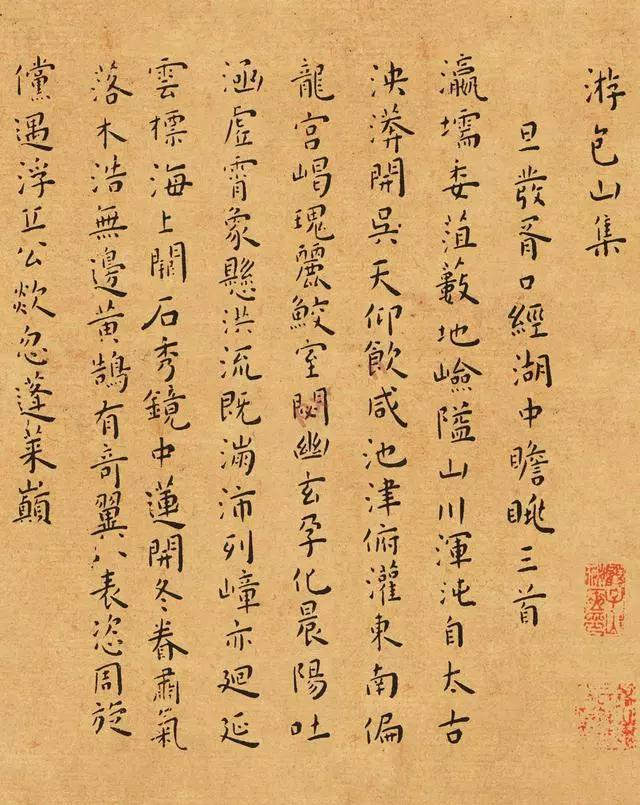 游包山集
旦發胥口經湖中瞻眺三首
瀛壖委菹藪地嶮隘山川渾沌自太古
泱漭開吳天仰飲咸池津俯灌東南偏
龍宮瑰麗鮫室閟幽玄孕化晨陽吐
涵虛霄象懸洪流既滿沛列嶂亦廻延
雲標海上石秀鏡中蓮開冬眷肅氣
落木浩無邊黃鵠有奇翼八表恣周旋
儻遇浮丘公欻忽蓬萊巔